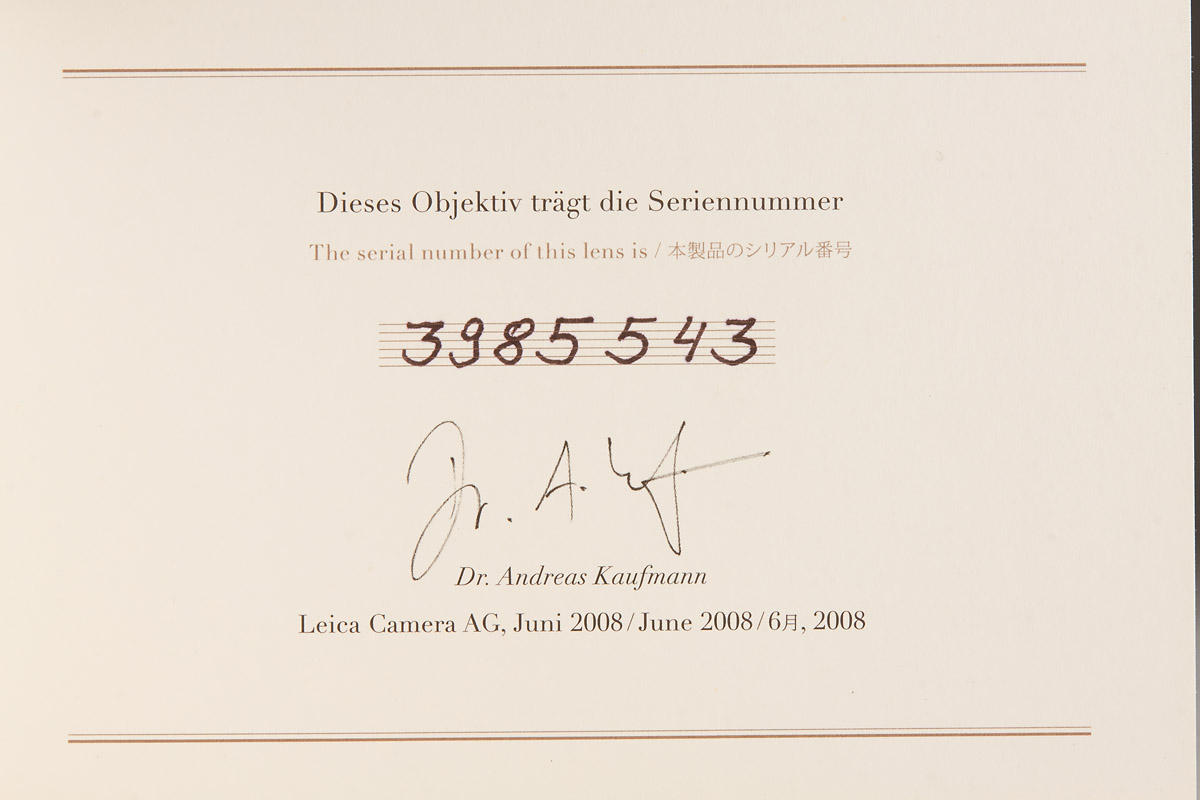 Dieses Objektiv trägt die Seriennummer
The serial number of this lens is / 本製品のシリアル番号
3985 543
Dr. A. Kf
Dr. Andreas Kaufmann
Leica Camera AG, Juni 2008/June 2008/6月, 2008